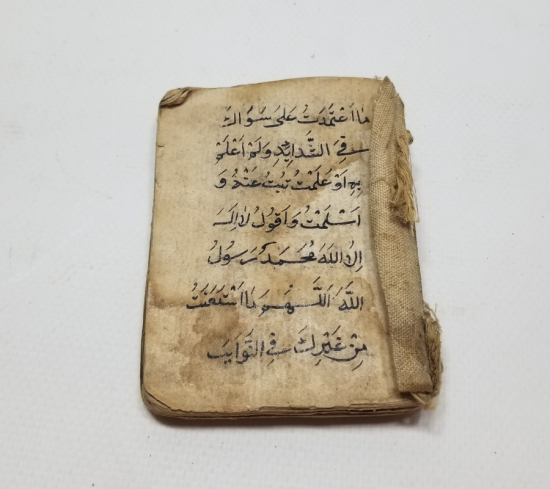 مَا اَعْتَمَدْتُ عَلىَ سَوَاكَ
فِى الشَّدَايِدِ وَلَمْ اَعْلَمْ
بِهِ اَوْ عَلِمْتُ تُبْتُ عَنْهُ وَ
اَسْلَمْتُ وَاَقُولُ لَا اِلَهَ
اِلَّا اللَّهَ مُحَمَدْ رَسُولُ
اللَّهِ اَللَّهُمَ مَا اسْتَعَنْتُ
مِنْ غَيْرِكَ فِى النَّوَايِبِ